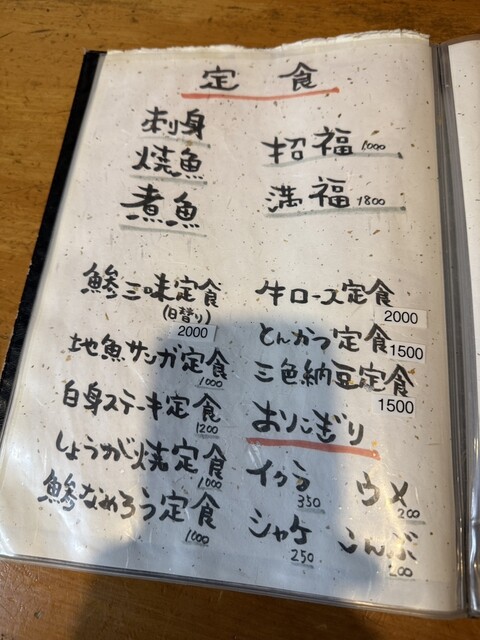 定食
刺身
焼魚
煮魚
招福 1000
満福 1800
鯵三味定食
(日替り)
2000
地魚サンガ定食
1000
白身ステーキ定食
1200
しょうが焼定食
1000
鯵なめろう定食
1000
牛ロース定食
2000
とんかつ定食 1500
三色納豆定食
1500
おにぎり
イクラ
350
ウメ
200
シャケ
250
こんぶ
200